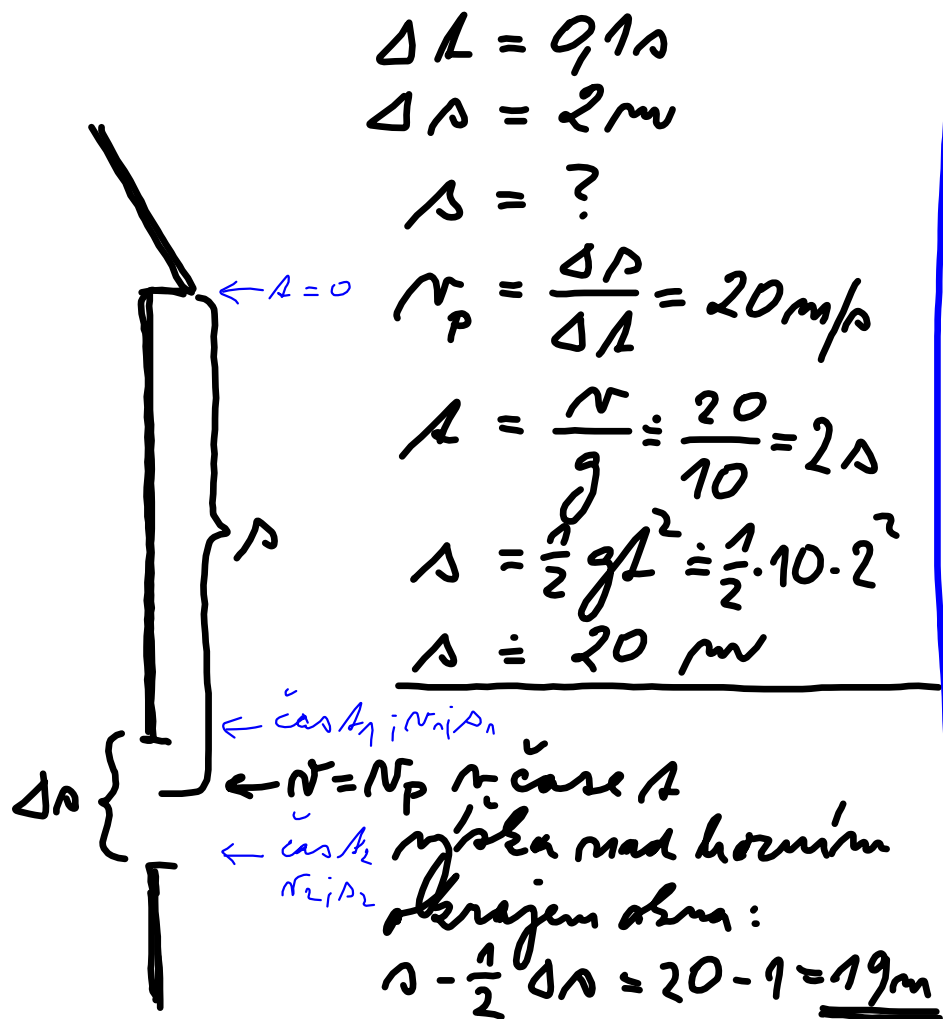 Δt = 0,1s
Δs = 2m
s = ?
v_p = Δs/Δt = 20m/s
← t = 0
t = v/g ≐ 20/10 = 2s
s
s = 1/2 gt² ≐ 1/2 · 10 · 2²
s ≐ 20 m
← čas t₁; v₁; s₁
← v = v_p v čase t
Δs
← čas t₂
v₂; s₂
výška nad horním
okrajem okna:
s - 1/2 Δs = 20 - 1 = 19m